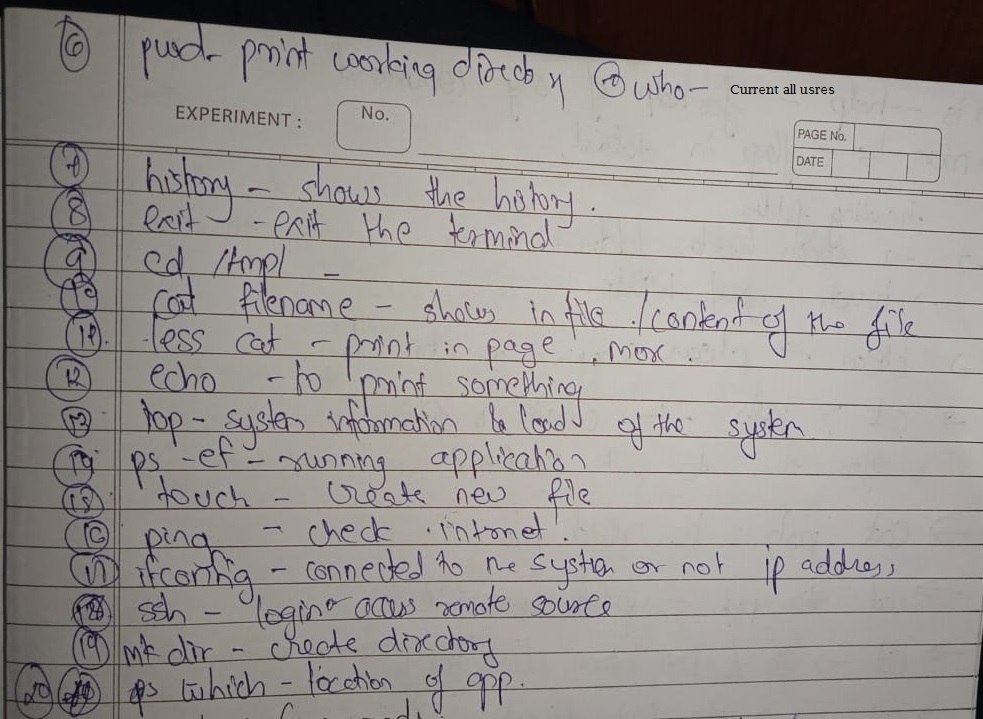 6 pwd- print working directory 7 who- Current all usres
EXPERIMENT : No.
PAGE No.
DATE
7 history - shows the history.
8 exit - exit the terminal
9 cd /tmp/ -
10 cat filename - shows in file /content of the file
11. less cat - print in page more
12 echo - to print something
13 top - system information & load of the system
14 ps -ef - running application
15 touch - create new file
16 ping - check internet.
17 ifconfig - connected to the system or not ip address
18 ssh - login or access remote source
19 mkdir - create directory
20 which - location of app.